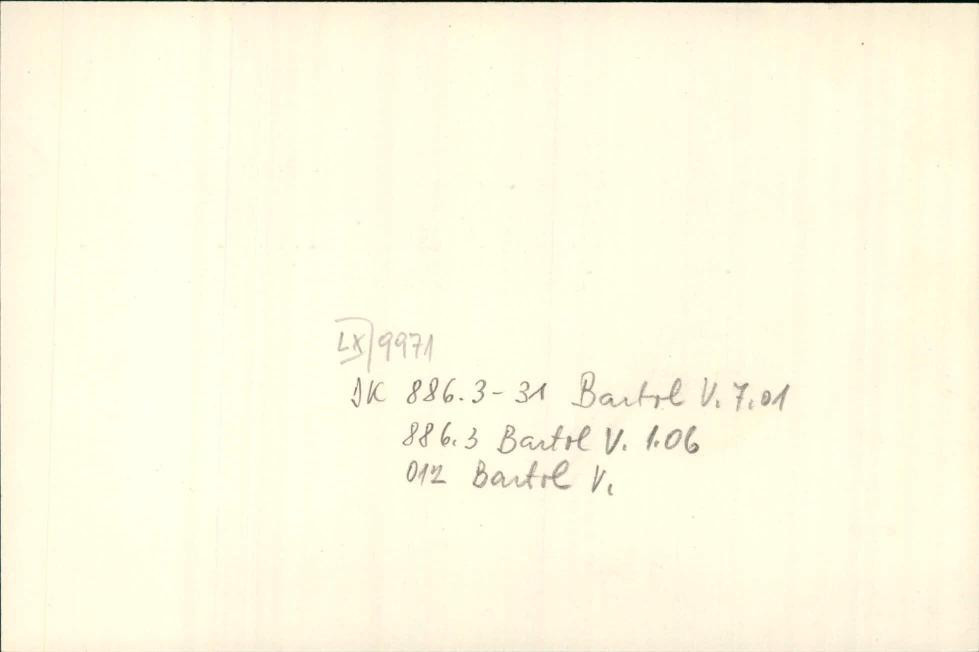 LX 9971
DK 886.3-31 Bartol V. 7.01
886.3 Bartol V. 1.06
012 Bartol V.